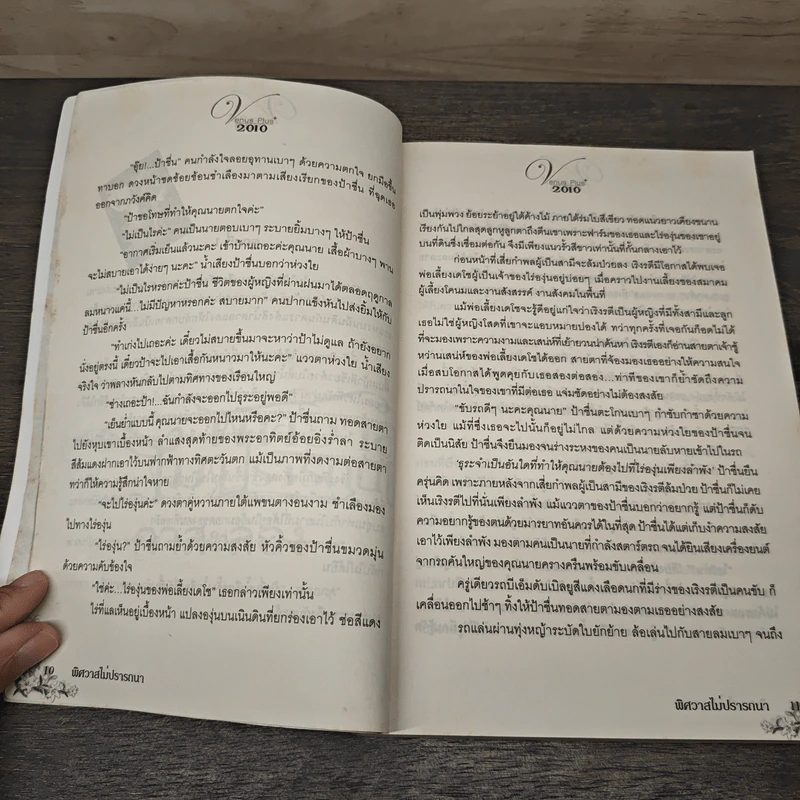 Venus Plus+
2010
“อุ๊ย!...ป้าชื่น” คนกำลังใจลอยอุทานเบาๆ ด้วยความตกใจ ยกมือขึ้น
ทาบอก ดวงหน้าชดช้อยช้อนชำเลืองมาตามเสียงเรียกของป้าชื่น ที่ฉุดเธอ
ออกจากภวังค์คิด
“ป้าขอโทษที่ทำให้คุณนายตกใจค่ะ”
“ไม่เป็นไรค่ะ” คนเป็นนายตอบเบาๆ ระบายยิ้มบางๆ ให้ป้าชื่น
“อากาศเริ่มเย็นแล้วนะคะ เข้าบ้านเถอะค่ะคุณนาย เสื้อผ้าบางๆ พาน
จะไม่สบายเอาได้ง่ายๆ นะคะ” น้ำเสียงป้าชื่นบอกว่าห่วงใย
“ไม่เป็นไรหรอกค่ะป้าชื่น ชีวิตของผู้หญิงที่ผ่านฝนมาได้ตลอดฤดูกาล
ลมหนาวแค่นี้...ไม่มีปัญหาหรอกค่ะ สบายมาก” คนปากแข็งหันไปส่งยิ้มให้กับ
ป้าชื่นอีกครั้ง
“ทำเก่งไปเถอะค่ะ เดี๋ยวไม่สบายขึ้นมาจะหาว่าป้าไม่ดูแล ถ้ายังอยาก
นั่งอยู่ตรงนี้ เดี๋ยวป้าจะไปเอาเสื้อกันหนาวมาให้นะคะ” แววตาห่วงใย น้ำเสียง
จริงใจ ว่าพลางหันกลับไปตามทิศทางของเรือนใหญ่
“ช่างเถอะป้า!...ฉันกำลังจะออกไปธุระอยู่พอดี”
“เย็นย่ำแบบนี้ คุณนายจะออกไปไหนหรือคะ?” ป้าชื่นถาม ทอดสายตา
ไปยังหุบเขาเบื้องหน้า ลำแสงสุดท้ายของพระอาทิตย์อ้อยอิ่งร่ำลา ระบาย
สีส้มแดงฝากเอาไว้บนฟากฟ้าทางทิศตะวันตก แม้เป็นภาพที่งดงามต่อสายตา
ทว่าก็ให้ความรู้สึกน่าใจหาย
“จะไปไร่องุ่นค่ะ” ดวงตาคู่หวานภายใต้แพขนตางอนงาม ชำเลืองมอง
ไปทางไร่องุ่น
“ไร่องุ่น?” ป้าชื่นถามย้ำด้วยความสงสัย หัวคิ้วของป้าชื่นขมวดมุ่น
ด้วยความคับข้องใจ
“ใช่ค่ะ...ไร่องุ่นของพ่อเลี้ยงเดโช” เธอกล่าวเพียงเท่านั้น
ไร่ที่แลเห็นอยู่เบื้องหน้า แปลงองุ่นบนเนินดินที่ยกร่องเอาไว้ ช่อสีแดง
10 พิศวาสไม่ปรารถนา
Venus Plus+
2010
เป็นพุ่มพวง ย้อยระย้าอยู่ใต้ค้างไม้ ภายใต้ร่มใบสีเขียว ทอดแนวยาวเคียงขนาน
เรียงกันไปไกลสุดลูกหูลูกตาถึงตีนเขาเพราะฟาร์มของเธอและไร่องุ่นของเขาอยู่
บนที่ดินซึ่งเชื่อมต่อกัน จึงมีเพียงแนวรั้วสีขาวเท่านั้นที่กั้นกลางเอาไว้
ก่อนหน้าที่เสี่ยกำพลผู้เป็นสามีจะล้มป่วยลง เริงรตีมีโอกาสได้พบเจอ
พ่อเลี้ยงเดโชผู้เป็นเจ้าของไร่องุ่นอยู่บ่อยๆ เมื่อคราวไปงานเลี้ยงของสมาคม
ผู้เลี้ยงโคนมและงานสังสรรค์ งานสังคมในพื้นที่
แม้พ่อเลี้ยงเดโชจะรู้ดีอยู่แก่ใจว่าเริงรตีเป็นผู้หญิงที่มีทั้งสามีและลูก
เธอไม่ใช่ผู้หญิงโสดที่เขาจะแอบหมายปองได้ ทว่าทุกครั้งที่เจอกันก็อดไม่ได้
ที่จะมองเพราะความงามและเสน่ห์ที่เย้ายวนน่าค้นหา เริงรตีเองก็อ่านสายตาเจ้าชู้
หว่านเสน่ห์ของพ่อเลี้ยงเดโชได้ออก สายตาที่จ้องมองเธออย่างให้ความสนใจ
เมื่อสบโอกาสได้พูดคุยกับเธอสองต่อสอง...ท่าทีของเขาก็ย้ำชัดถึงความ
ปรารถนาในใจของเขาที่มีต่อเธอ แจ่มชัดอย่างไม่ต้องสงสัย
“ขับรถดีๆ นะคะคุณนาย” ป้าชื่นตะโกนเบาๆ กำชับกำชาด้วยความ
ห่วงใย แม้ที่ซึ่งเธอจะไปนั้นก็อยู่ไม่ไกล แต่ด้วยความห่วงใยของป้าชื่นจน
ติดเป็นนิสัย ป้าชื่นจึงยืนมองจนร่างระหงของคนเป็นนายลับหายเข้าไปในรถ
‘ธุระจำเป็นอันใดที่ทำให้คุณนายต้องไปที่ไร่องุ่นเพียงลำพัง’ ป้าชื่นยืน
ครุ่นคิด เพราะภายหลังจากเสี่ยกำพลผู้เป็นสามีของเริงรตีล้มป่วย ป้าชื่นก็ไม่เคย
เห็นเริงรตีไปที่นั่นเพียงลำพัง แม้แววตาของป้าชื่นบอกว่าอยากรู้ แต่ป้าชื่นก็ดับ
ความอยากรู้ของตนด้วยมารยาทอันควรได้ในที่สุด ป้าชื่นได้แต่เก็บงำความสงสัย
เอาไว้เพียงลำพัง มองตามคนเป็นนายที่กำลังสตาร์ตรถ จนได้ยินเสียงเครื่องยนต์
จากรถคันใหญ่ของคุณนายครางครืนพร้อมขับเคลื่อน
ครู่เดียวรถบีเอ็มดับเบิลยูสีแดงเลือดนกที่มีร่างของเริงรตีเป็นคนขับ ก็
เคลื่อนออกไปช้าๆ ทิ้งให้ป้าชื่นทอดสายตามองตามเธออย่างสงสัย
รถแล่นผ่านทุ่งหญ้าระบัดใบยักย้าย ล้อเล่นไปกับสายลมเบาๆ จนถึง
พิศวาสไม่ปรารถนา 11